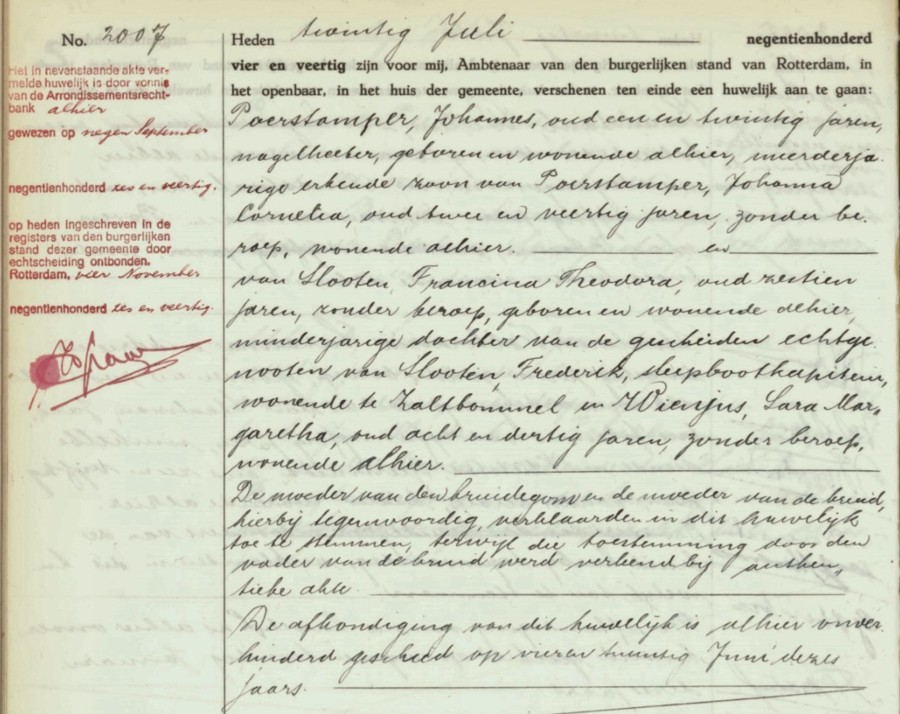 No. 2007
Het in nevenstaande akte ver-
melde huwelijk is door vonnis
van de Arrondissementsrecht-
bank alhier
gewezen op negen September
negentienhonderd zes en veertig.
op heden ingeschreven in de
registers van den burgerlijken
stand dezer gemeente door
echtscheiding ontbonden.
Rotterdam, vier November
negentienhonderd zes en veertig.
Heden twintig Juli negentienhonderd
vier en veertig zijn voor mij, Ambtenaar van den burgerlijken stand van Rotterdam, in
het openbaar, in het huis der gemeente, verschenen ten einde een huwelijk aan te gaan:
Poerstamper, Johannes, oud een en twintig jaren,
nagelheeter, geboren en wonende alhier, meerderja-
rige erkende zoon van Poerstamper, Johanna
Cornelia, oud twee en veertig jaren, zonder be-
roep, wonende alhier. en
van Slooten, Francina Theodora, oud zestien
jaren, zonder beroep, geboren en wonende alhier,
minderjarige dochter van de gescheiden echtge-
nooten van Slooten, Frederik, sleepbootkapitein,
wonende te Zaltbommel en Wienjus, Sara Mar-
garetha, oud acht en dertig jaren, zonder beroep,
wonende alhier.
De moeder van den bruidegom en de moeder van de bruid,
hierbij tegenwoordig, verklaarden in dit huwelijk
toe te stemmen, terwijl die toestemming door den
vader van de bruid werd verleend bij authen-
tieke akte.
De afkondiging van dit huwelijk is alhier onver-
hinderd geschied op vier en twintig Juni dezes
jaars.